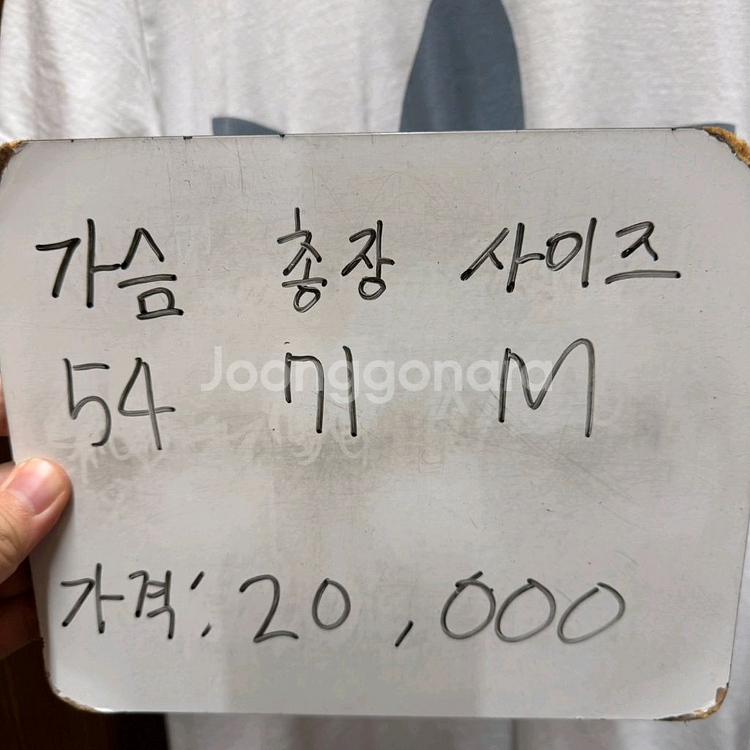 가슴 총장 사이즈
54 71 M
Joonggonara
가격: 20,000